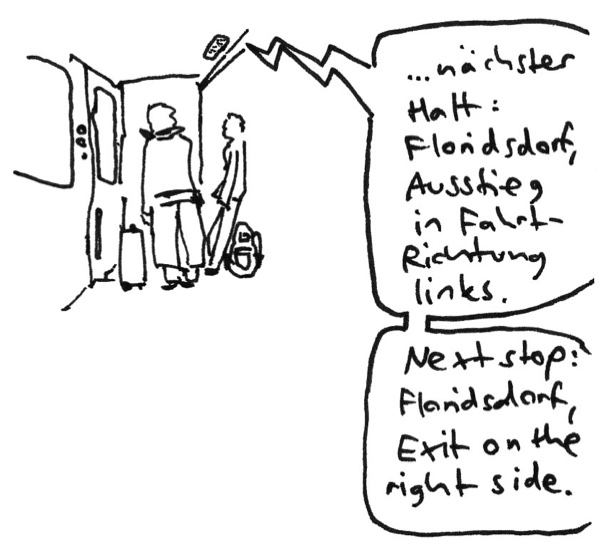 ...nächster
Halt:
Floridsdorf,
Ausstieg
in Fahrt-
Richtung
links.
Next stop:
Floridsdorf,
Exit on the
right side.